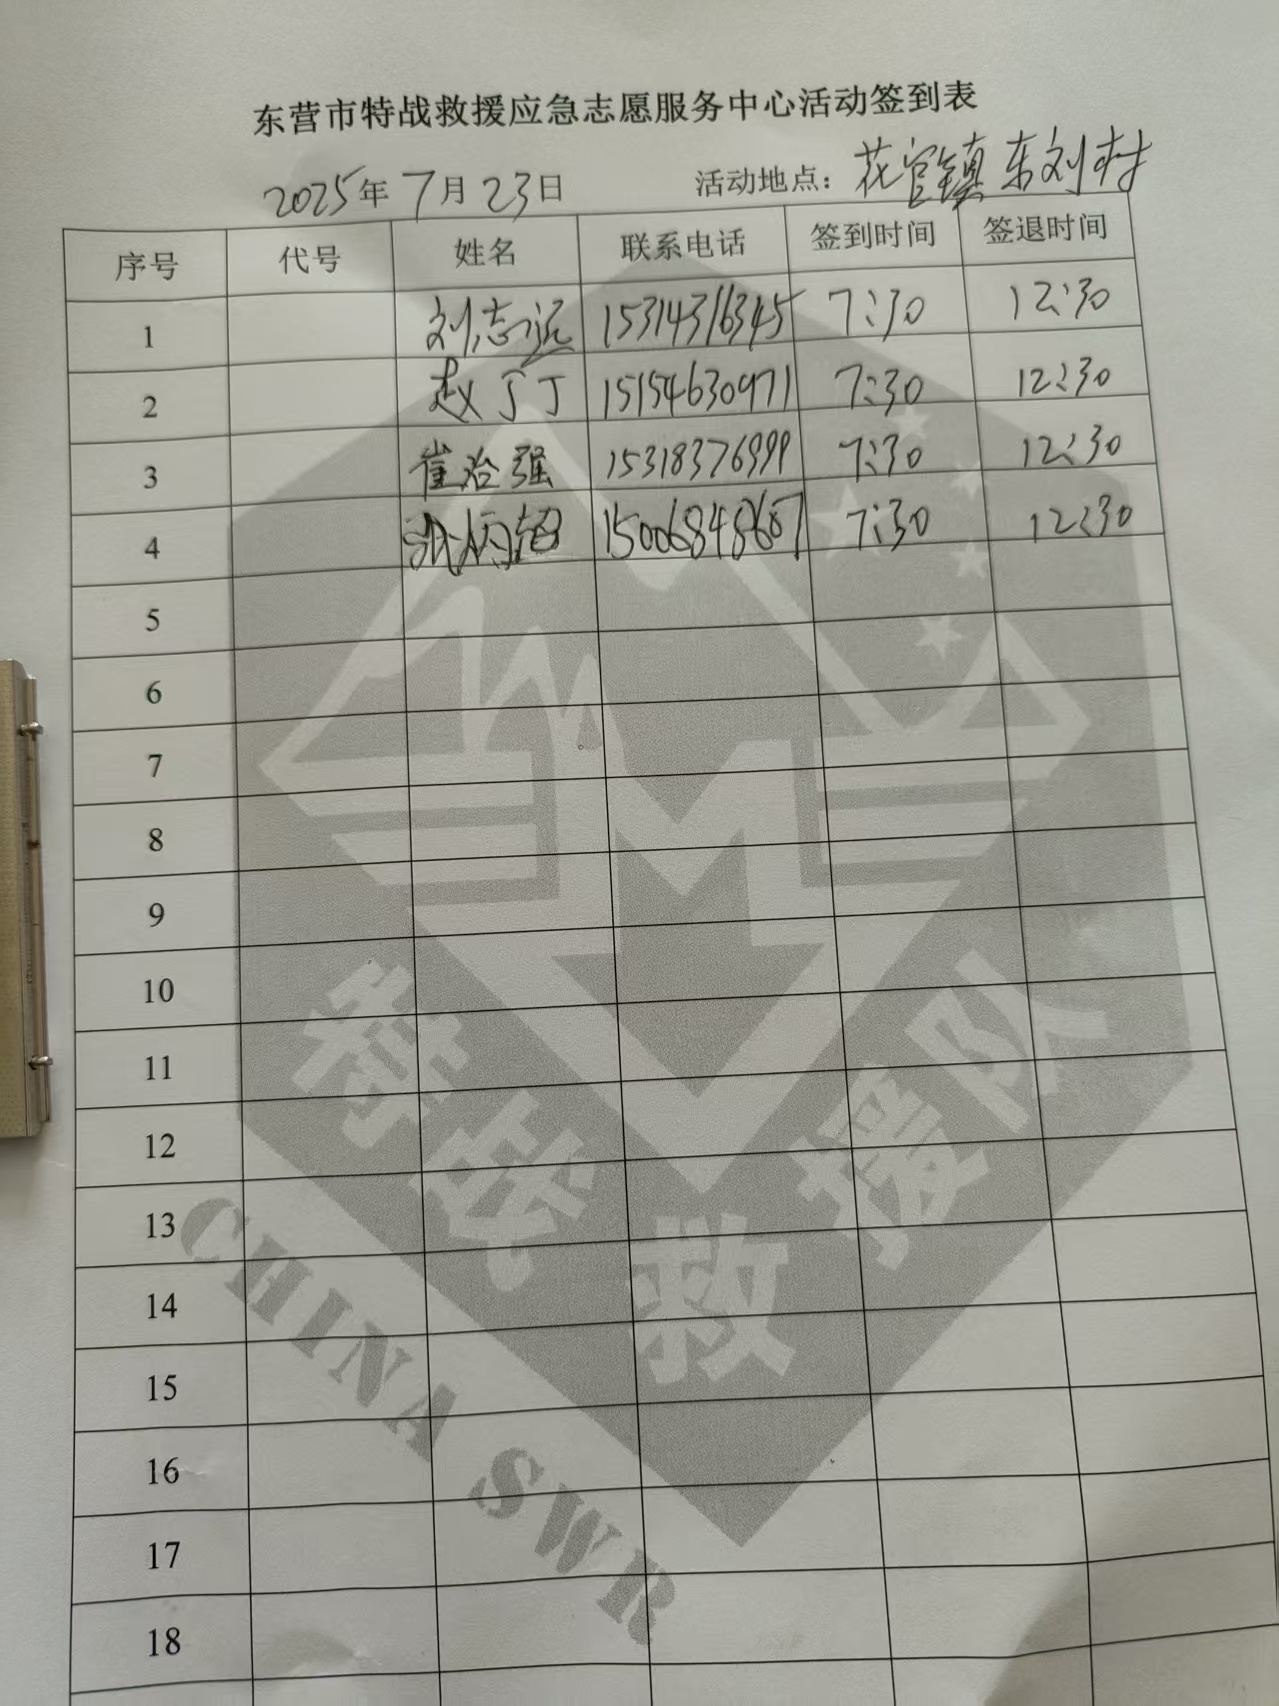 东营市特战救援应急志愿服务中心活动签到表
2025年 7月 23日 活动地点：花官镇东刘村
序号 代号 姓名 联系电话 签到时间 签退时间
1 刘志远 15314316345 7:30 12:30
2 赵丁丁 15154630971 7:30 12:30
3 崔治强 15318376999 7:30 12:30
4 张炳超 15006848687 7:30 12:30
5
6
7
8
9
10
11
12
13
14
15
16
17
18
特战救援队
CHINA SWR